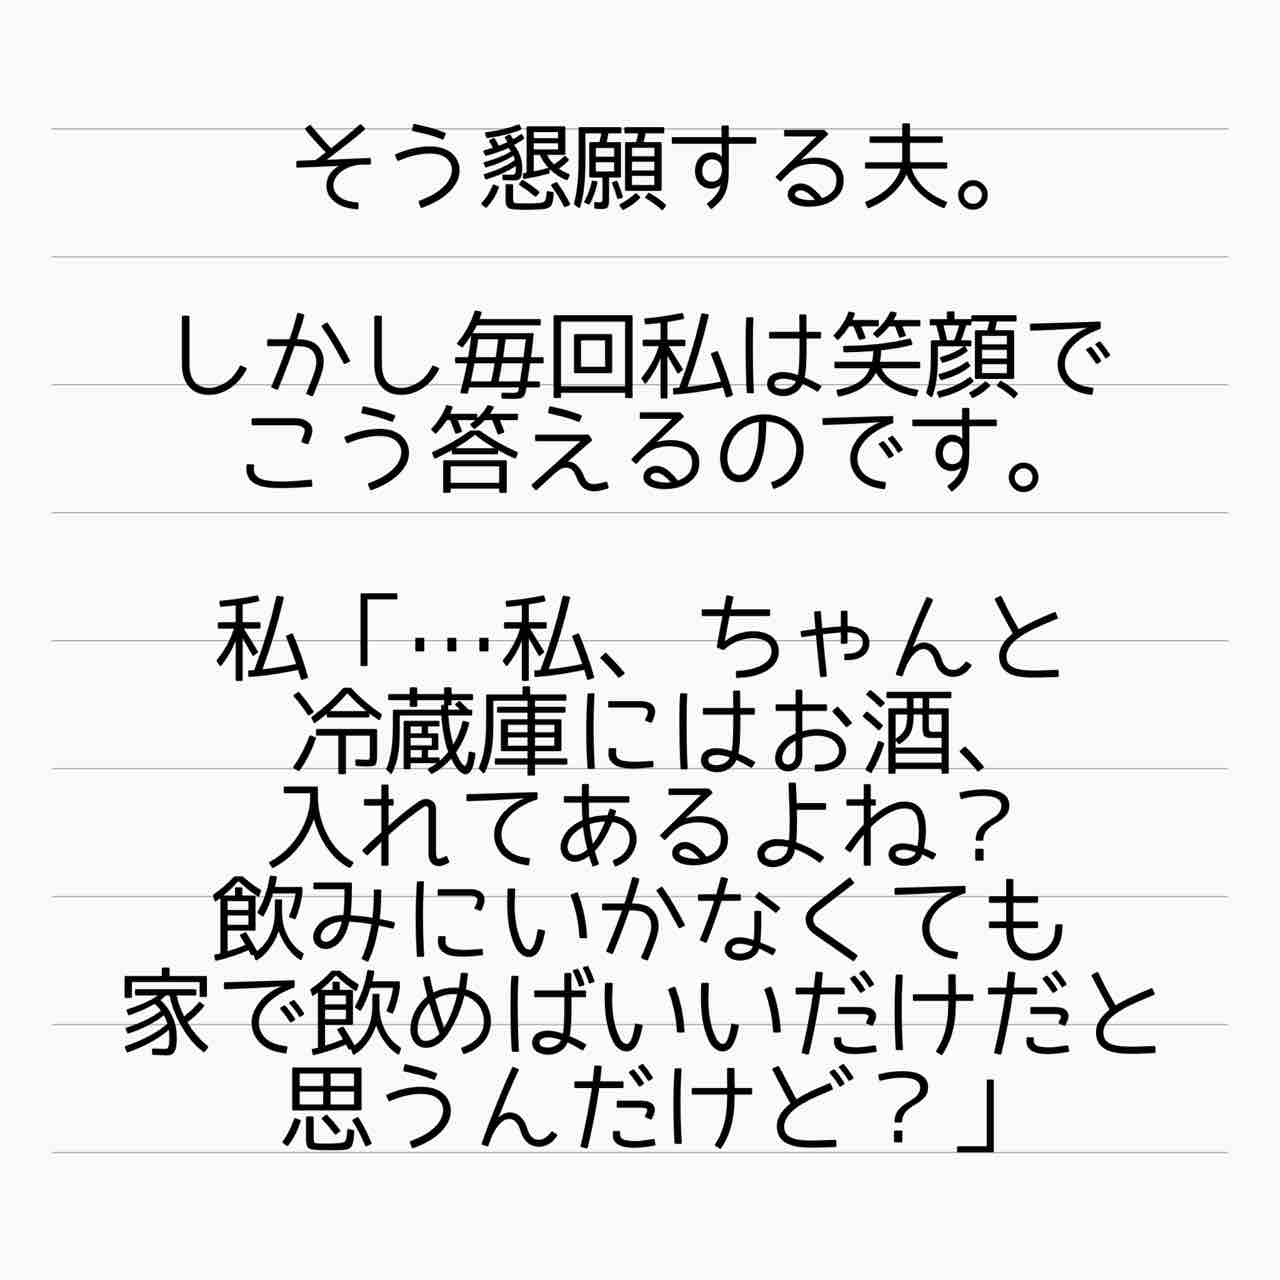 そう懇願する夫。
しかし毎回私は笑顔で
こう答えるのです。
私「…私、ちゃんと
冷蔵庫にはお酒、
入れてあるよね？
飲みにいかなくても
家で飲めばいいだけだと
思うんだけど？」